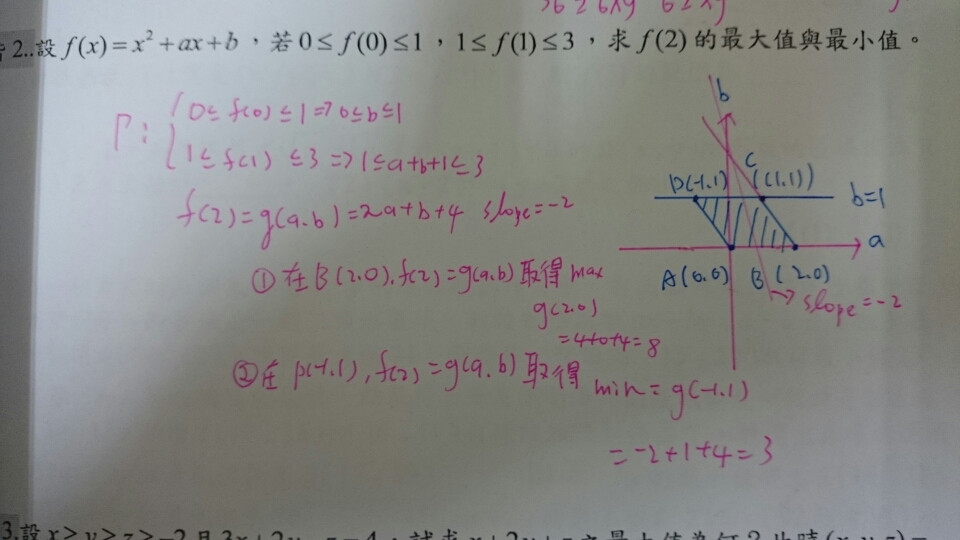 2..設 f(x)=x²+ax+b，若 0≤f(0)≤1，1≤f(1)≤3，求 f(2) 的最大值與最小值。
P: { 0≤f(0)≤1 => 0≤b≤1
1≤f(1)≤3 => 1≤a+b+1≤3
f(2)=g(a.b)=2a+b+4 slope=-2
① 在B(2.0).f(2)=g(a.b)取得max
g(2.0)
=4+0+4=8
②在 D(-1.1),f(2)=g(a.b)取得 min=g(-1.1)
=-2+1+4=3
b
D(-1.1) C (1.1)
b=1
a
A(0.0) B (2.0)
→ slope=-2
3.設 x≥y≥z≥-2且3x+2y